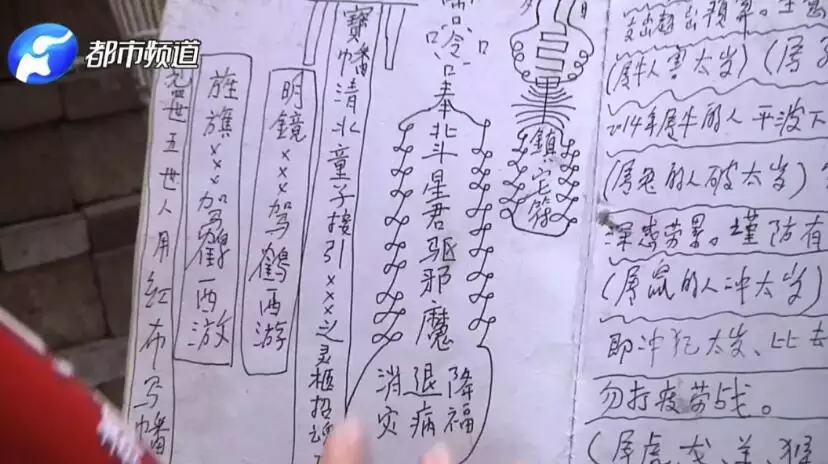 都市频道
世五世人用红布写幡
旌旗×××驾鶴西游
明鏡×××驾鶴西游
寶幡清北童子接引×××之灵柩招魂
奉北斗星君驱邪魔
降福
退病
消灾
鎮宅符
支出超出预算。
(属牛人害太岁)(属
2014年属牛的人平波下
(属兔的人破太岁)
深感劳累。谨防有
(属鼠的人冲太岁)
即冲犯太岁、比去
勿打疲劳战。
(属虎、龙、羊、猴